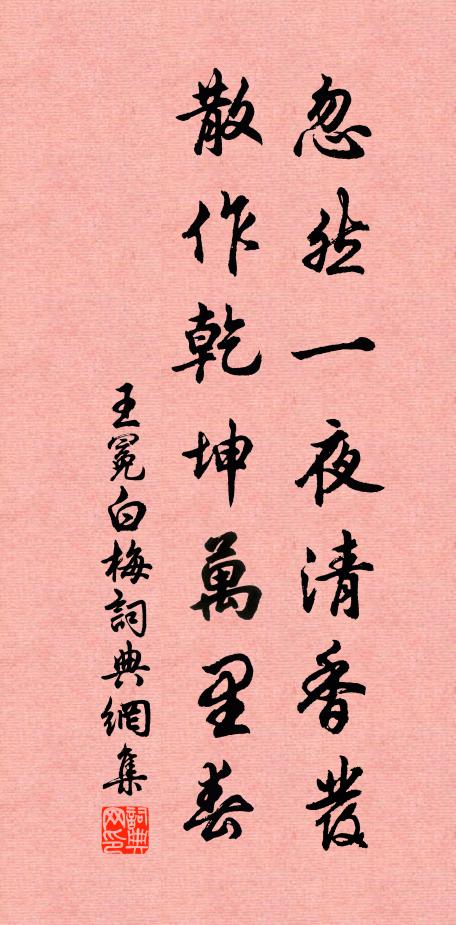 忽然一夜清香發
散作乾坤萬里春
王冕白梅詞典網集
詞典
网印